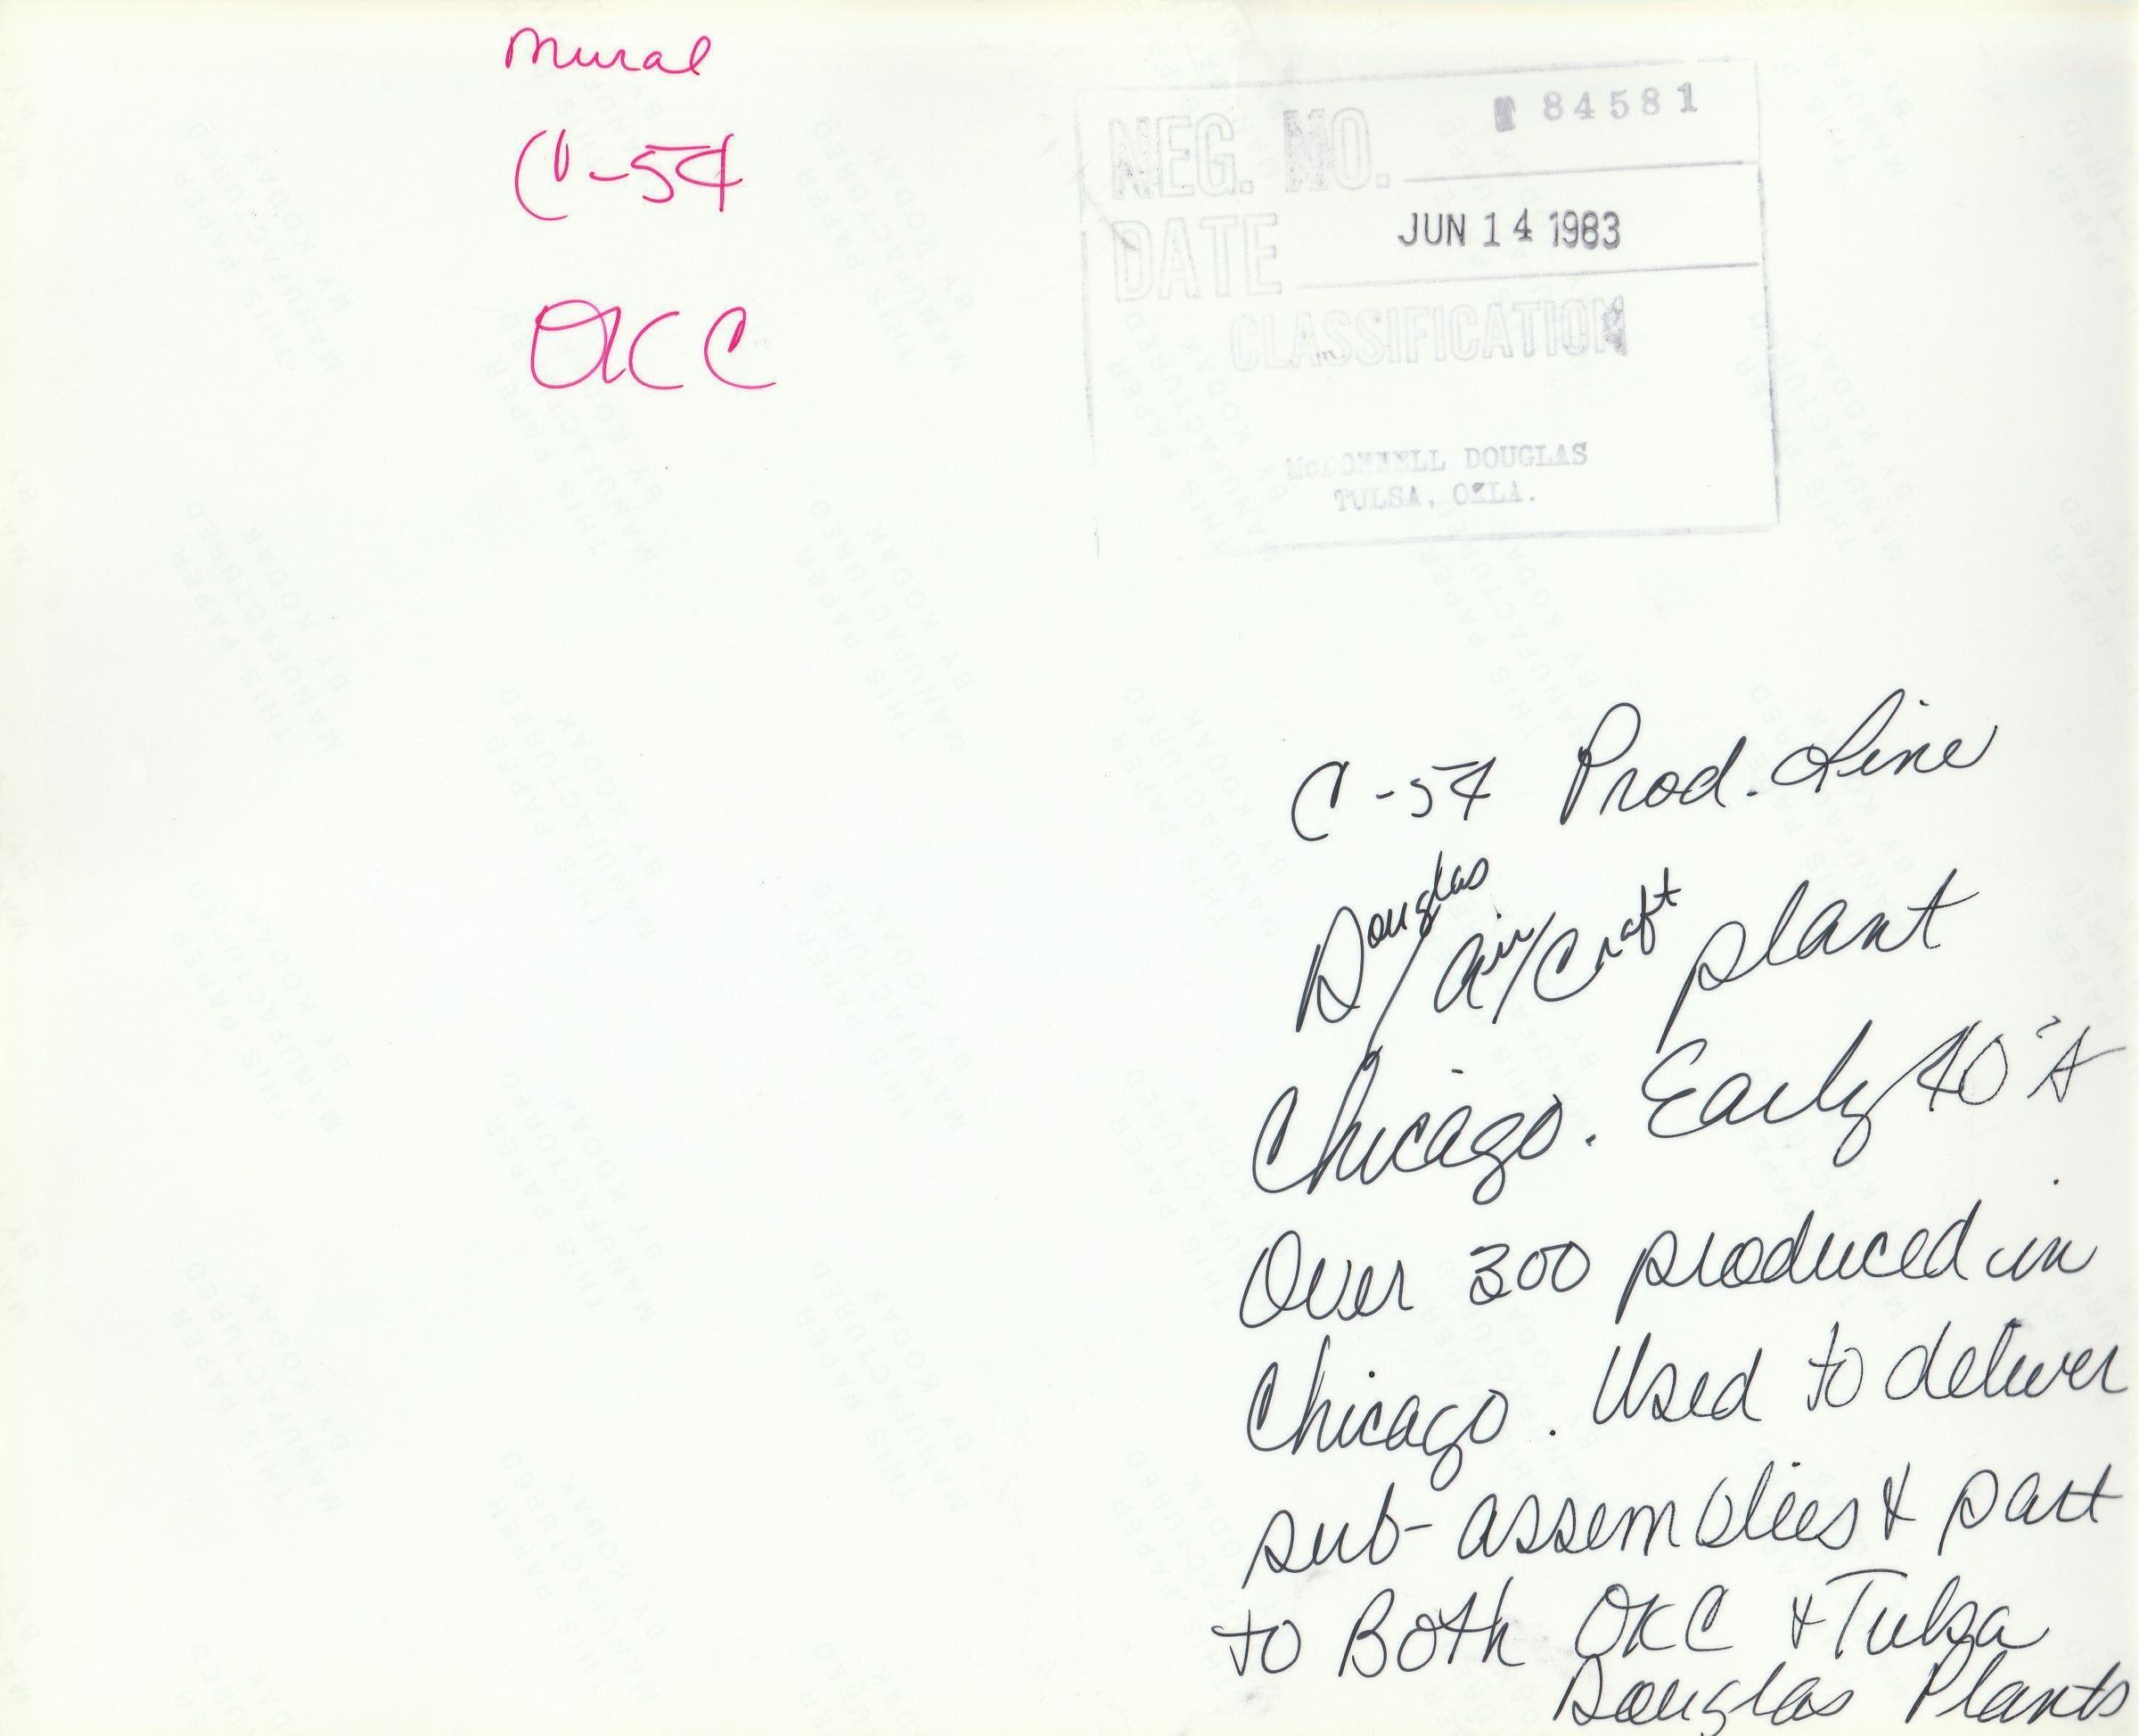 Mural
C-54
OKC
NEG. NO. 84581
DATE JUN 14 1983
CLASSIFICATION
McDONNELL DOUGLAS
TULSA, OKLA.
C-54 Prod. Line
Douglas Air/Craft plant
Chicago. Early 40's
Over 300 produced in
Chicago. Used to deliver
sub-assemblies & part
to Both OKC & Tulsa
Douglas Plants
THIS PAPER
MANUFACTURED
BY KODAK